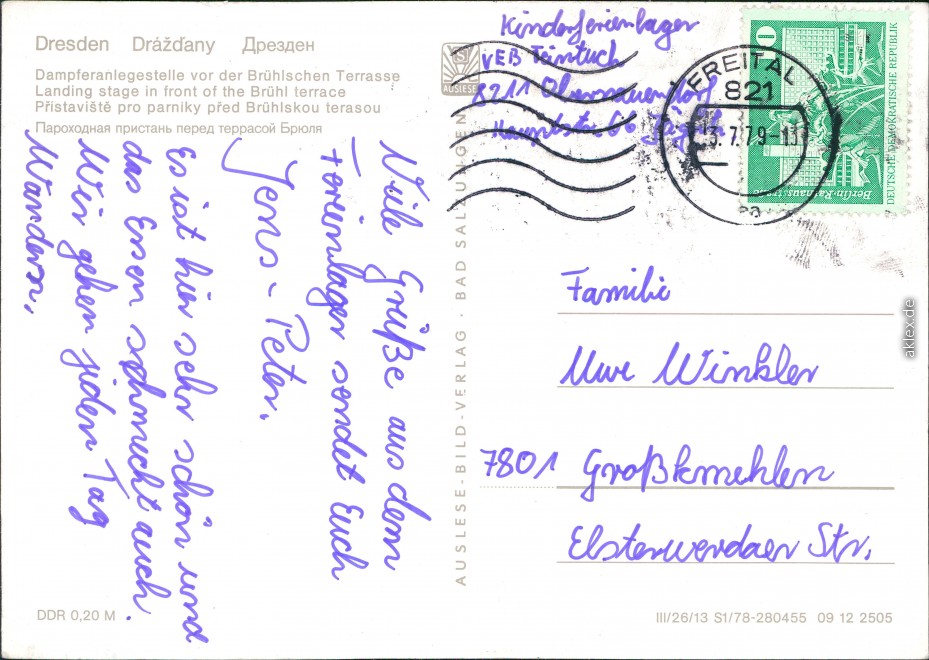 Dresden Drážďany Дрезден
Dampferanlegestelle vor der Brühlschen Terrasse
Landing stage in front of the Brühl terrace
Přístaviště pro parníky před Brühlskou terasou
Пароходная пристань перед террасой Брюля
Viele Grüße aus dem
Ferienlager sendet Euch
Jens-Peter.
Es ist hier sehr schön und
das Essen schmeckt auch.
Wir gehen jeden Tag
Wandern.
DDR 0,20 M
AUSLESE
AUSLESE-BILD-VERLAG · BAD SALZUNGEN
Kinderferienlager
VEB
8211
FREITAL
821
3.7.79-13
10
DEUTSCHE DEMOKRATISCHE REPUBLIK
Berlin-Rathausstraße
Familie
Uwe Winkler
7801 Großkmehlen
Elsterwerdaer Str.
III/26/13 S1/78-280455 09 12 2505
aklex.de